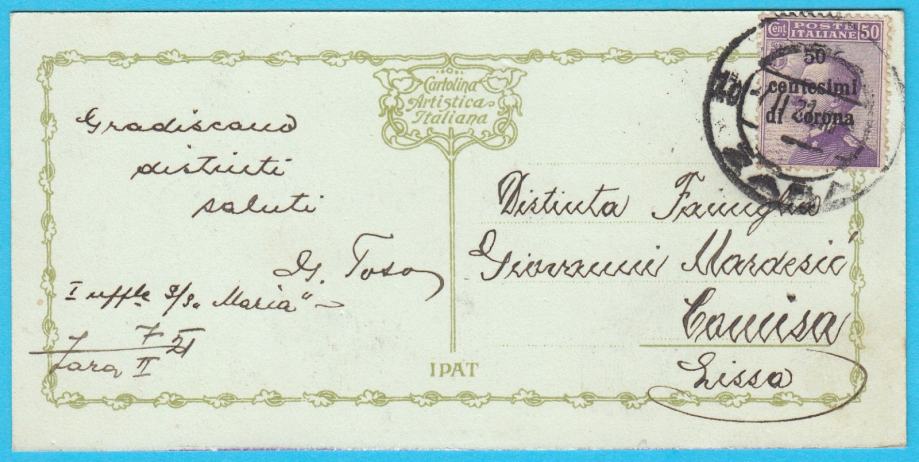 Cartolina
Artistica
Italiana
Gradiscano
distinti
saluti
G. Toso
I uffle S/S. "Maria"
Zara 7 II 21
Distinta Famiglia
Giovanni Mardesić
Comisa
Lissa
IPAT
Cent POSTE ITALIANE 50
50
centesimi
di corona